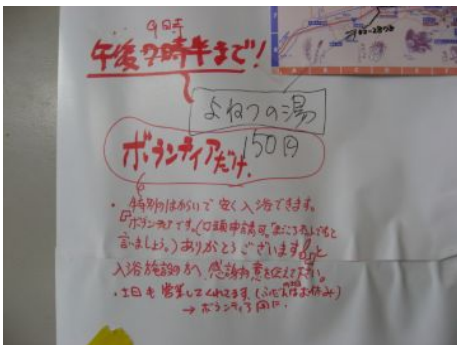 9時
午後7時半まで!
よねつの湯
ボランティアだけ、150円
・特別のはからいで安く入浴できます。
ボランティアです。(口頭申請可。
言いましょう。)ありがとうございますと
入浴施設の方へ感謝の意を伝えて下さい。
・土日も営業してくれてます。(ふだんはお休み)
→ボランティア用に。